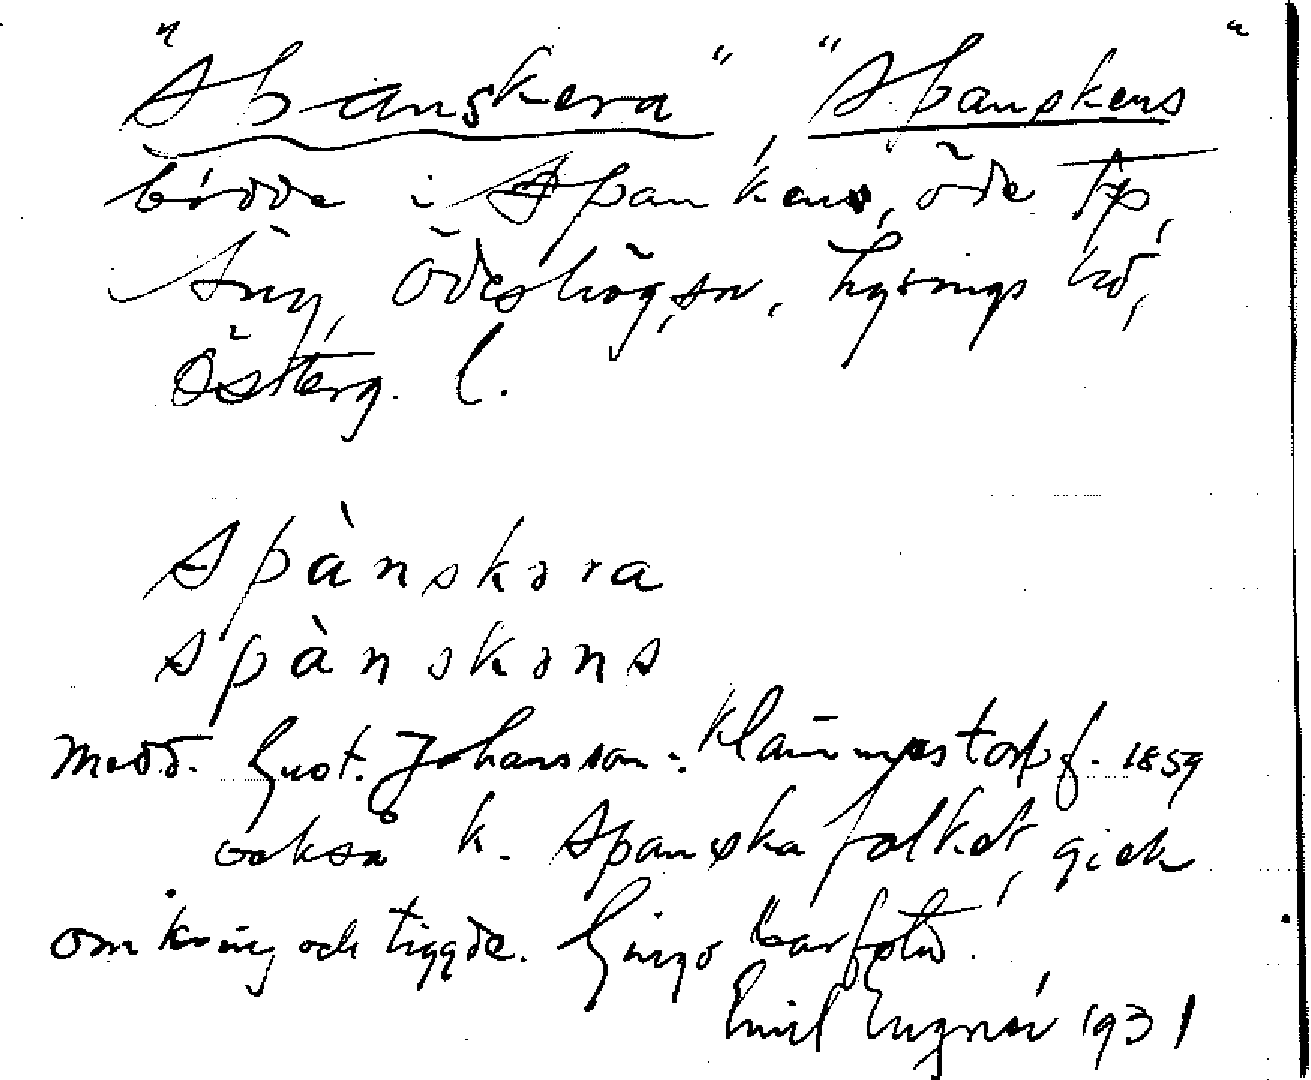 "Spanskera" "Spanskens"
bodde i Spankens, öde tp,
i Äng, Ödeshögs sn, Lysings hd,
Österg. l.
spànskəra
spànskəns
Medd. Gust. Johansson i Klämmestorp f. 1859
också k. Spanska folket, gick
omkring och tiggde. Gingo barfota.
Emil 1931